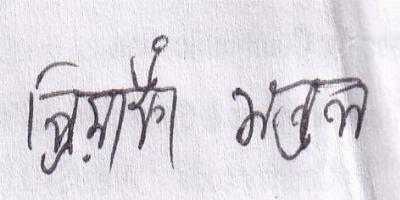 প্রিয়াংকা মণ্ডল